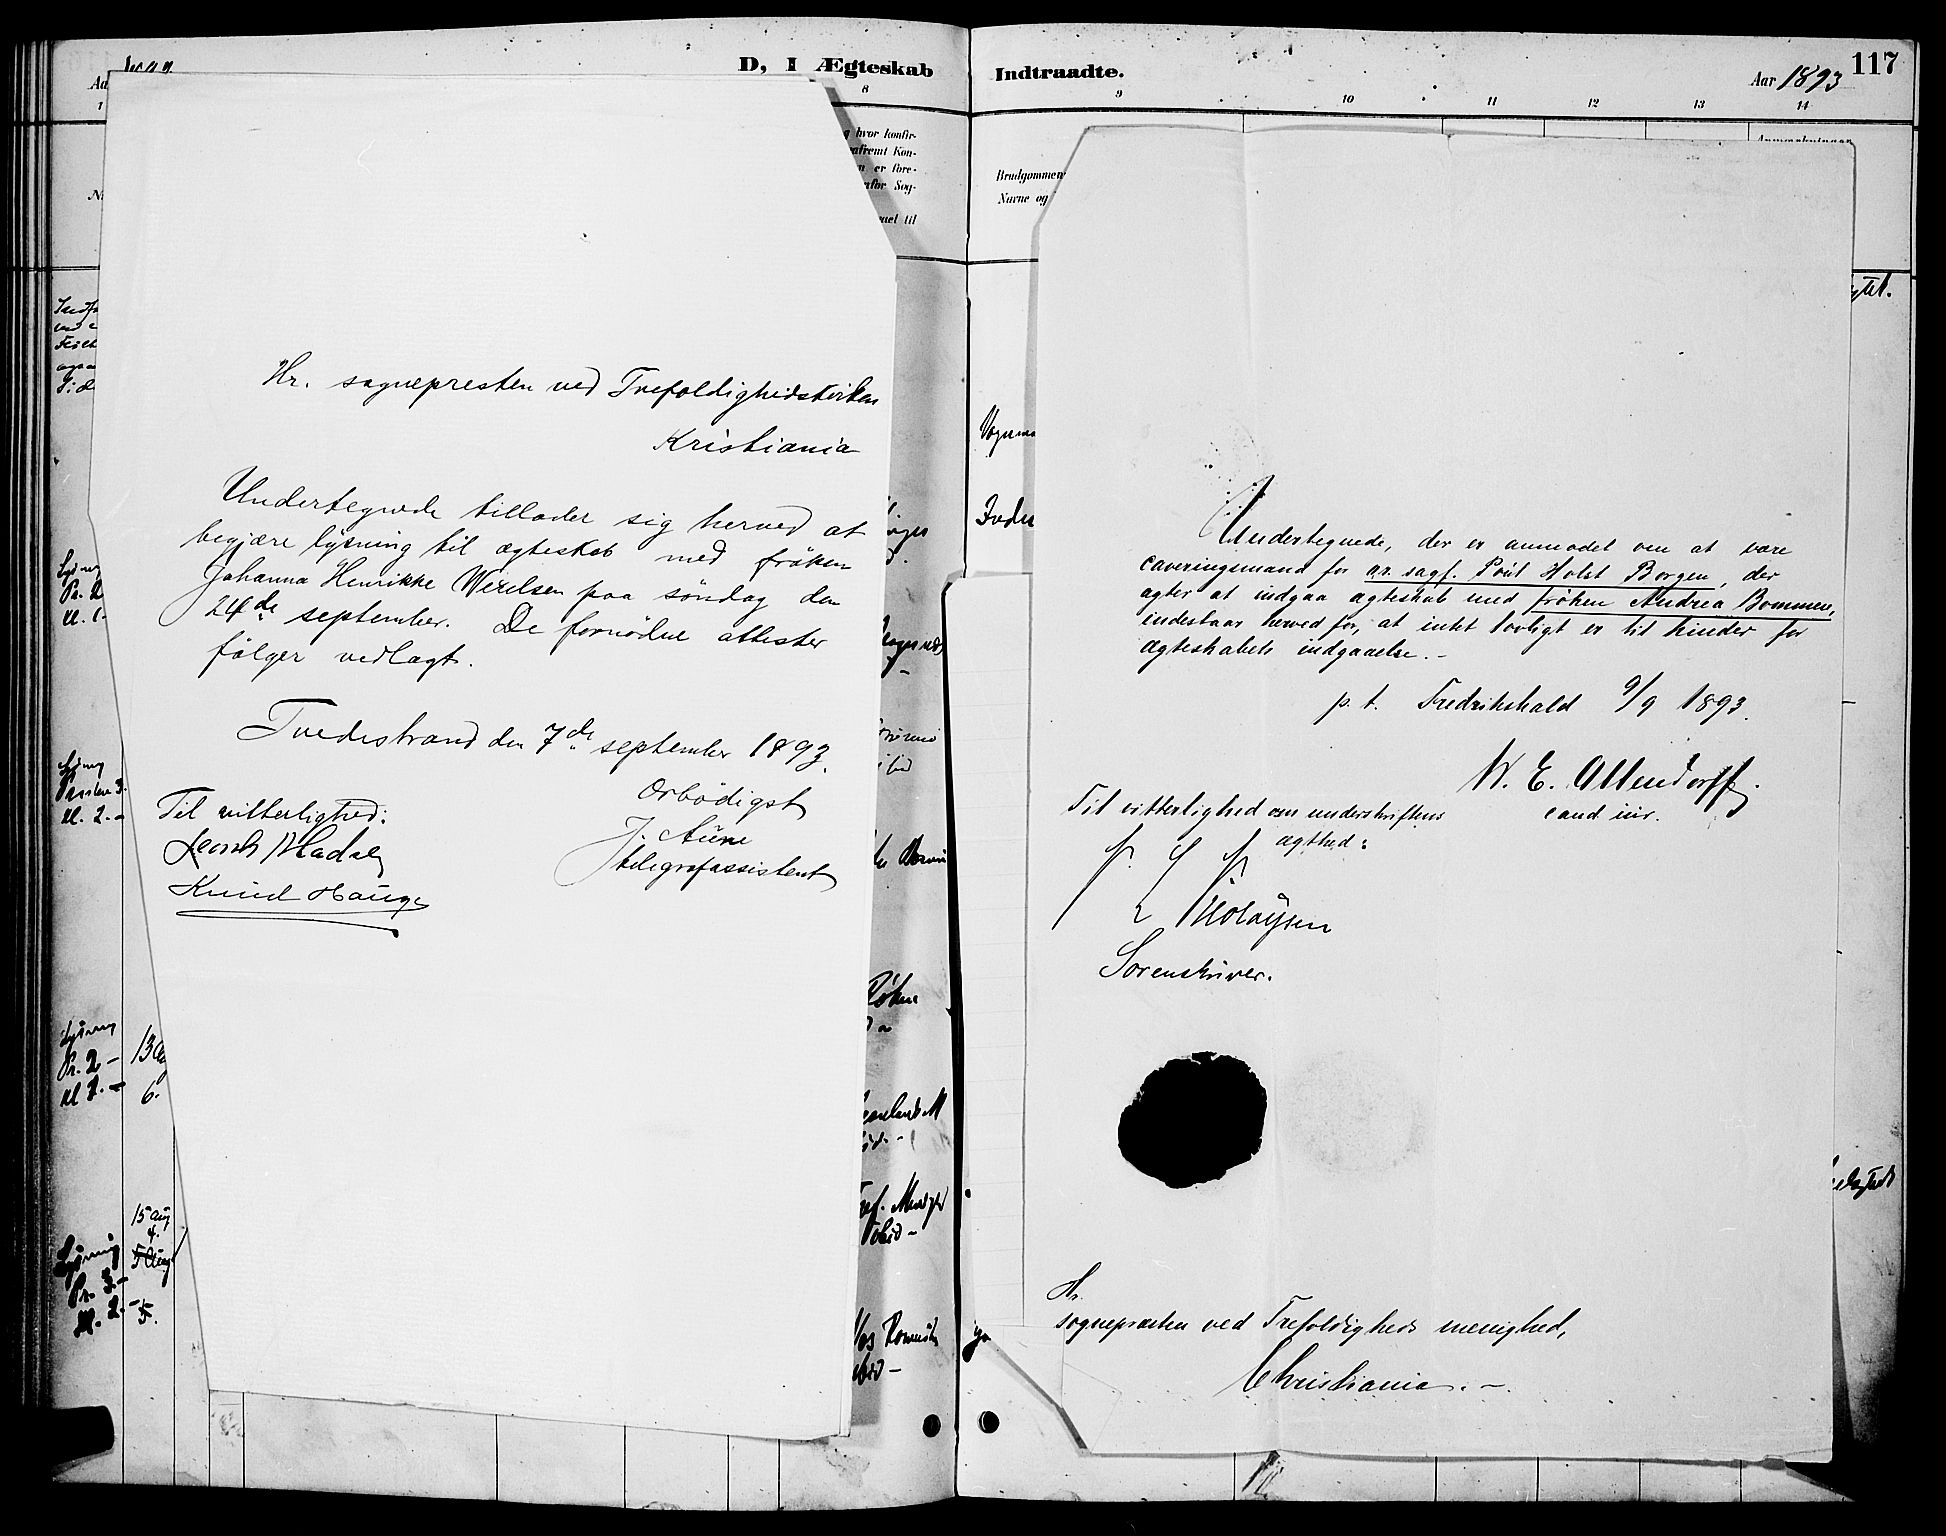 D, I Ægteskab
Indtraadte.
Aar 1893
117
8
9
10
11
12
13
14
Hr. sognepresten ved Trefoldighedskirken
Kristiania
Undertegnede tillader sig herved at
begjære lysning til ægteskab med frøken
Johanna Henrikke Wexelsen paa söndag den
24de september. De fornödne attester
fölger vedlagt.
Tvedestrand den 7de september 1893.
Orbödigst
J. Aune
telegrafassistent
Til vitterlighed:
Knud Hauge
Undertegnede, der er anmodet om at være
caveringsmand for or. sagf. Poul Holst Borgen, der
agter at indgaa ægteskab med frøken Andrea Bommen,
indestaar herved for, at intet lovligt er til hinder for
ægteskabets indgaaelse.-
p. t. Fredrikshald 9/9 1893.
W. E. Allendorff.
cand jur.
Til vitterlighed om underskriftens
ægthed:
Sorenskriver.
Hr.
sognepresten ved Trefoldigheds menighed,
Christiania.-
Lysning
Pr. 2 -
Kl 2. -
6.
15 aug
Lysning
Pr. 3 -
Kl. 2. -
5.